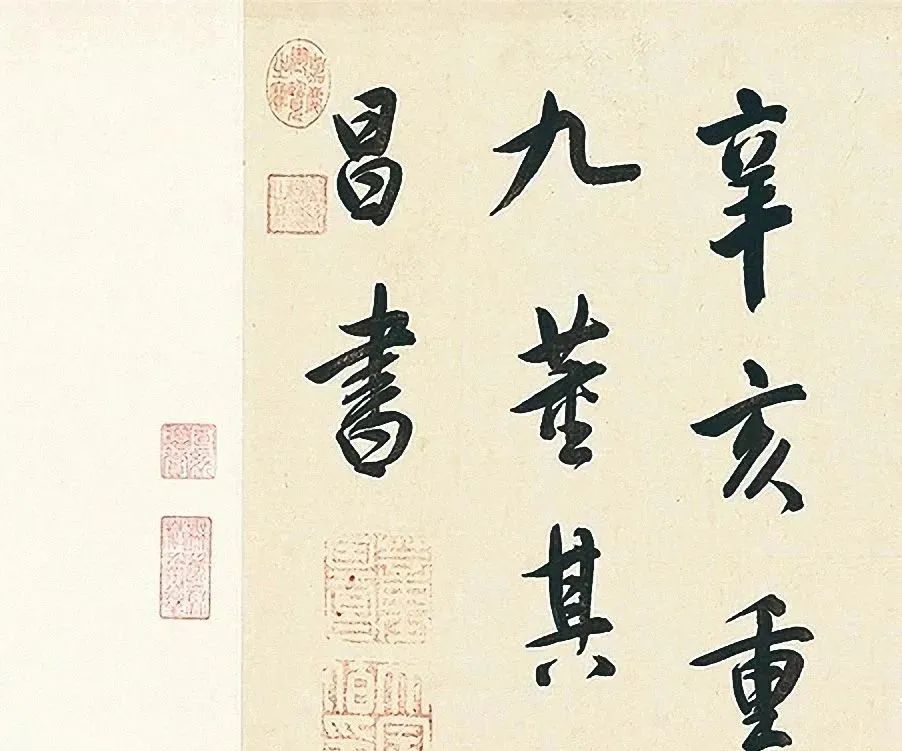 辛亥重
九董其
昌書